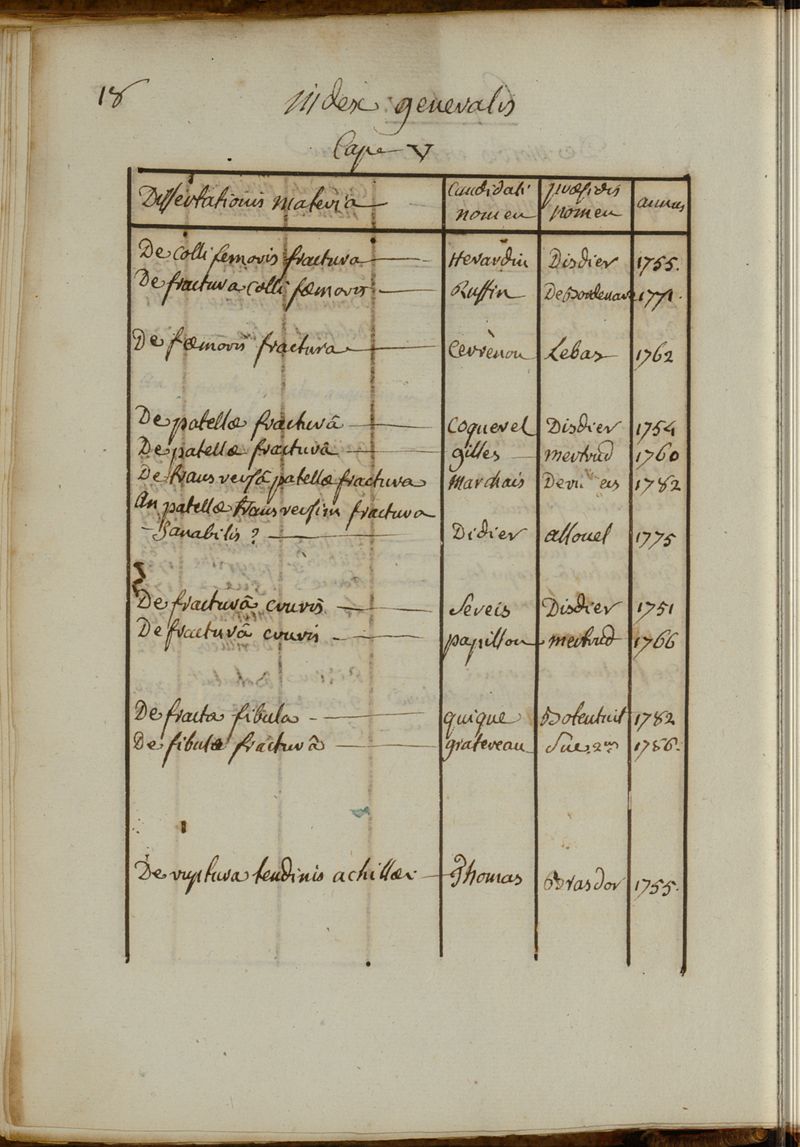 18
index generalis
Cap. V
Dissertationis materia candidati nomen præsidis nomen annus
De colli femoris fractura Herardin Disdier 1755.
De fractura colli fœmoris Ruffin De Bordenave 1771.
De fœmoris fractura Cervenon Lebas 1762
De patellæ fracturâ Coquerel Disdier 1754
De patellæ fracturâ gilles mertrud 1760
De transversâ patellæ fractura Marchais 1782
An patellæ transversim fractura
Sanabilis? Didier allouel 1775
De fracturâ cruris Disdier 1751
De fracturâ cruris papillon mertrud 1766
De fracta fibula quique Botentuit 1782
De fibulæ fracturâ gratereau Süe 2us 1786.
De ruptura tendinis achillæi Thomas Brasdor 1755.